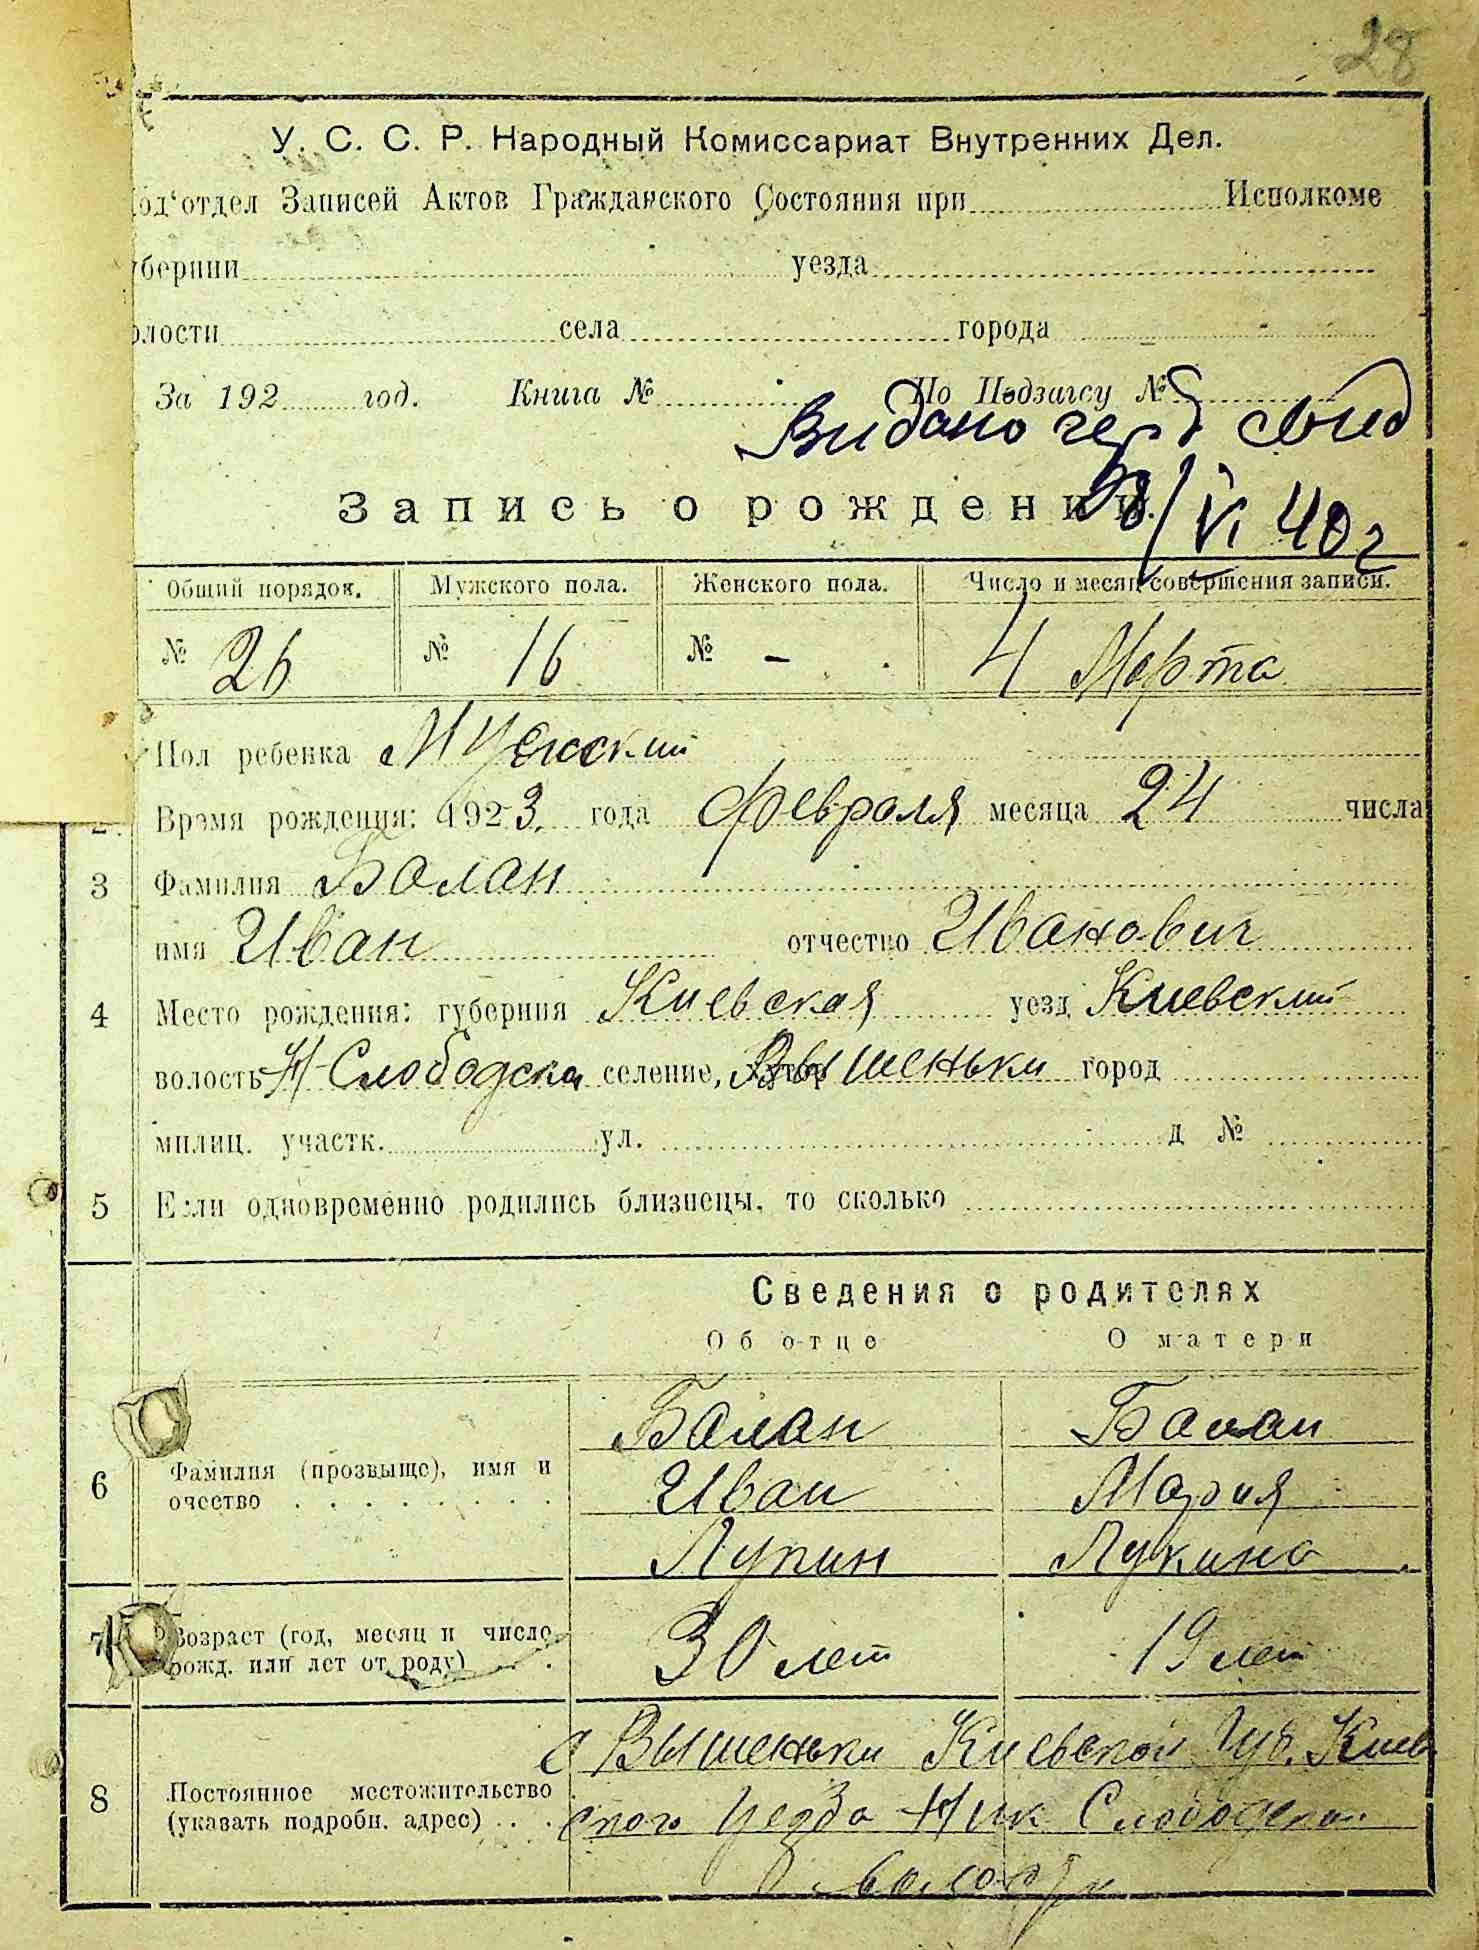 28
У. С. С. Р. Народный Комиссариат Внутренних Дел.
од‘отдел Записей Актов Гражданского Состояния при Исполкоме
бернии уезда
лости села города
За 192 год. Книга № По Подзагсу №
Видано герб свид
/VI 40 г
Запись о рождении.
Общий порядок. Мужского пола. Женского пола. Число и месяц совершения записи.
№ 26 № 16 № - 4 Марта
Пол ребенка Мужский
Время рождения: 1923 года Февраля месяца 24 числа
3 Фамилия Балан
имя Иван отчество Иванович
4 Место рождения: губерния Киевская уезд Киевский
волость Н-Слободска селение, Вышеньки город
милиц. участк. ул. д №
5 Если одновременно родились близнецы, то сколько
Сведения о родителях
Об отце О матери
Балан Балан
6 Фамилия (прозвыще), имя и Иван Мария
очество Лупин Лукина
7 Возраст (год, месяц и число 30 лет 19 лет
рожд. или лет от роду)
с Вышеньки Киевской Губ. Киев
8 Постоянное местожительство
(указать подробн. адрес) ского Уезда Ник Слободской
волости